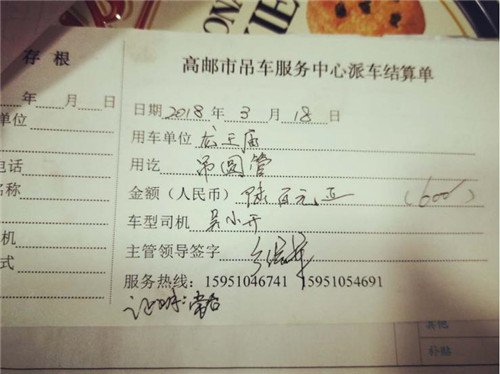 存根
年 月 日
单位
电话
名称
机
式
高邮市吊车服务中心派车结算单
日期 2018 年 3 月 18 日
用车单位 龙王庙
用讫 吊圆管
金额（人民币） 陆百元正 (600)
车型司机 吴小开
主管领导签字
服务热线：15951046741 15951054691
证明：
补贴